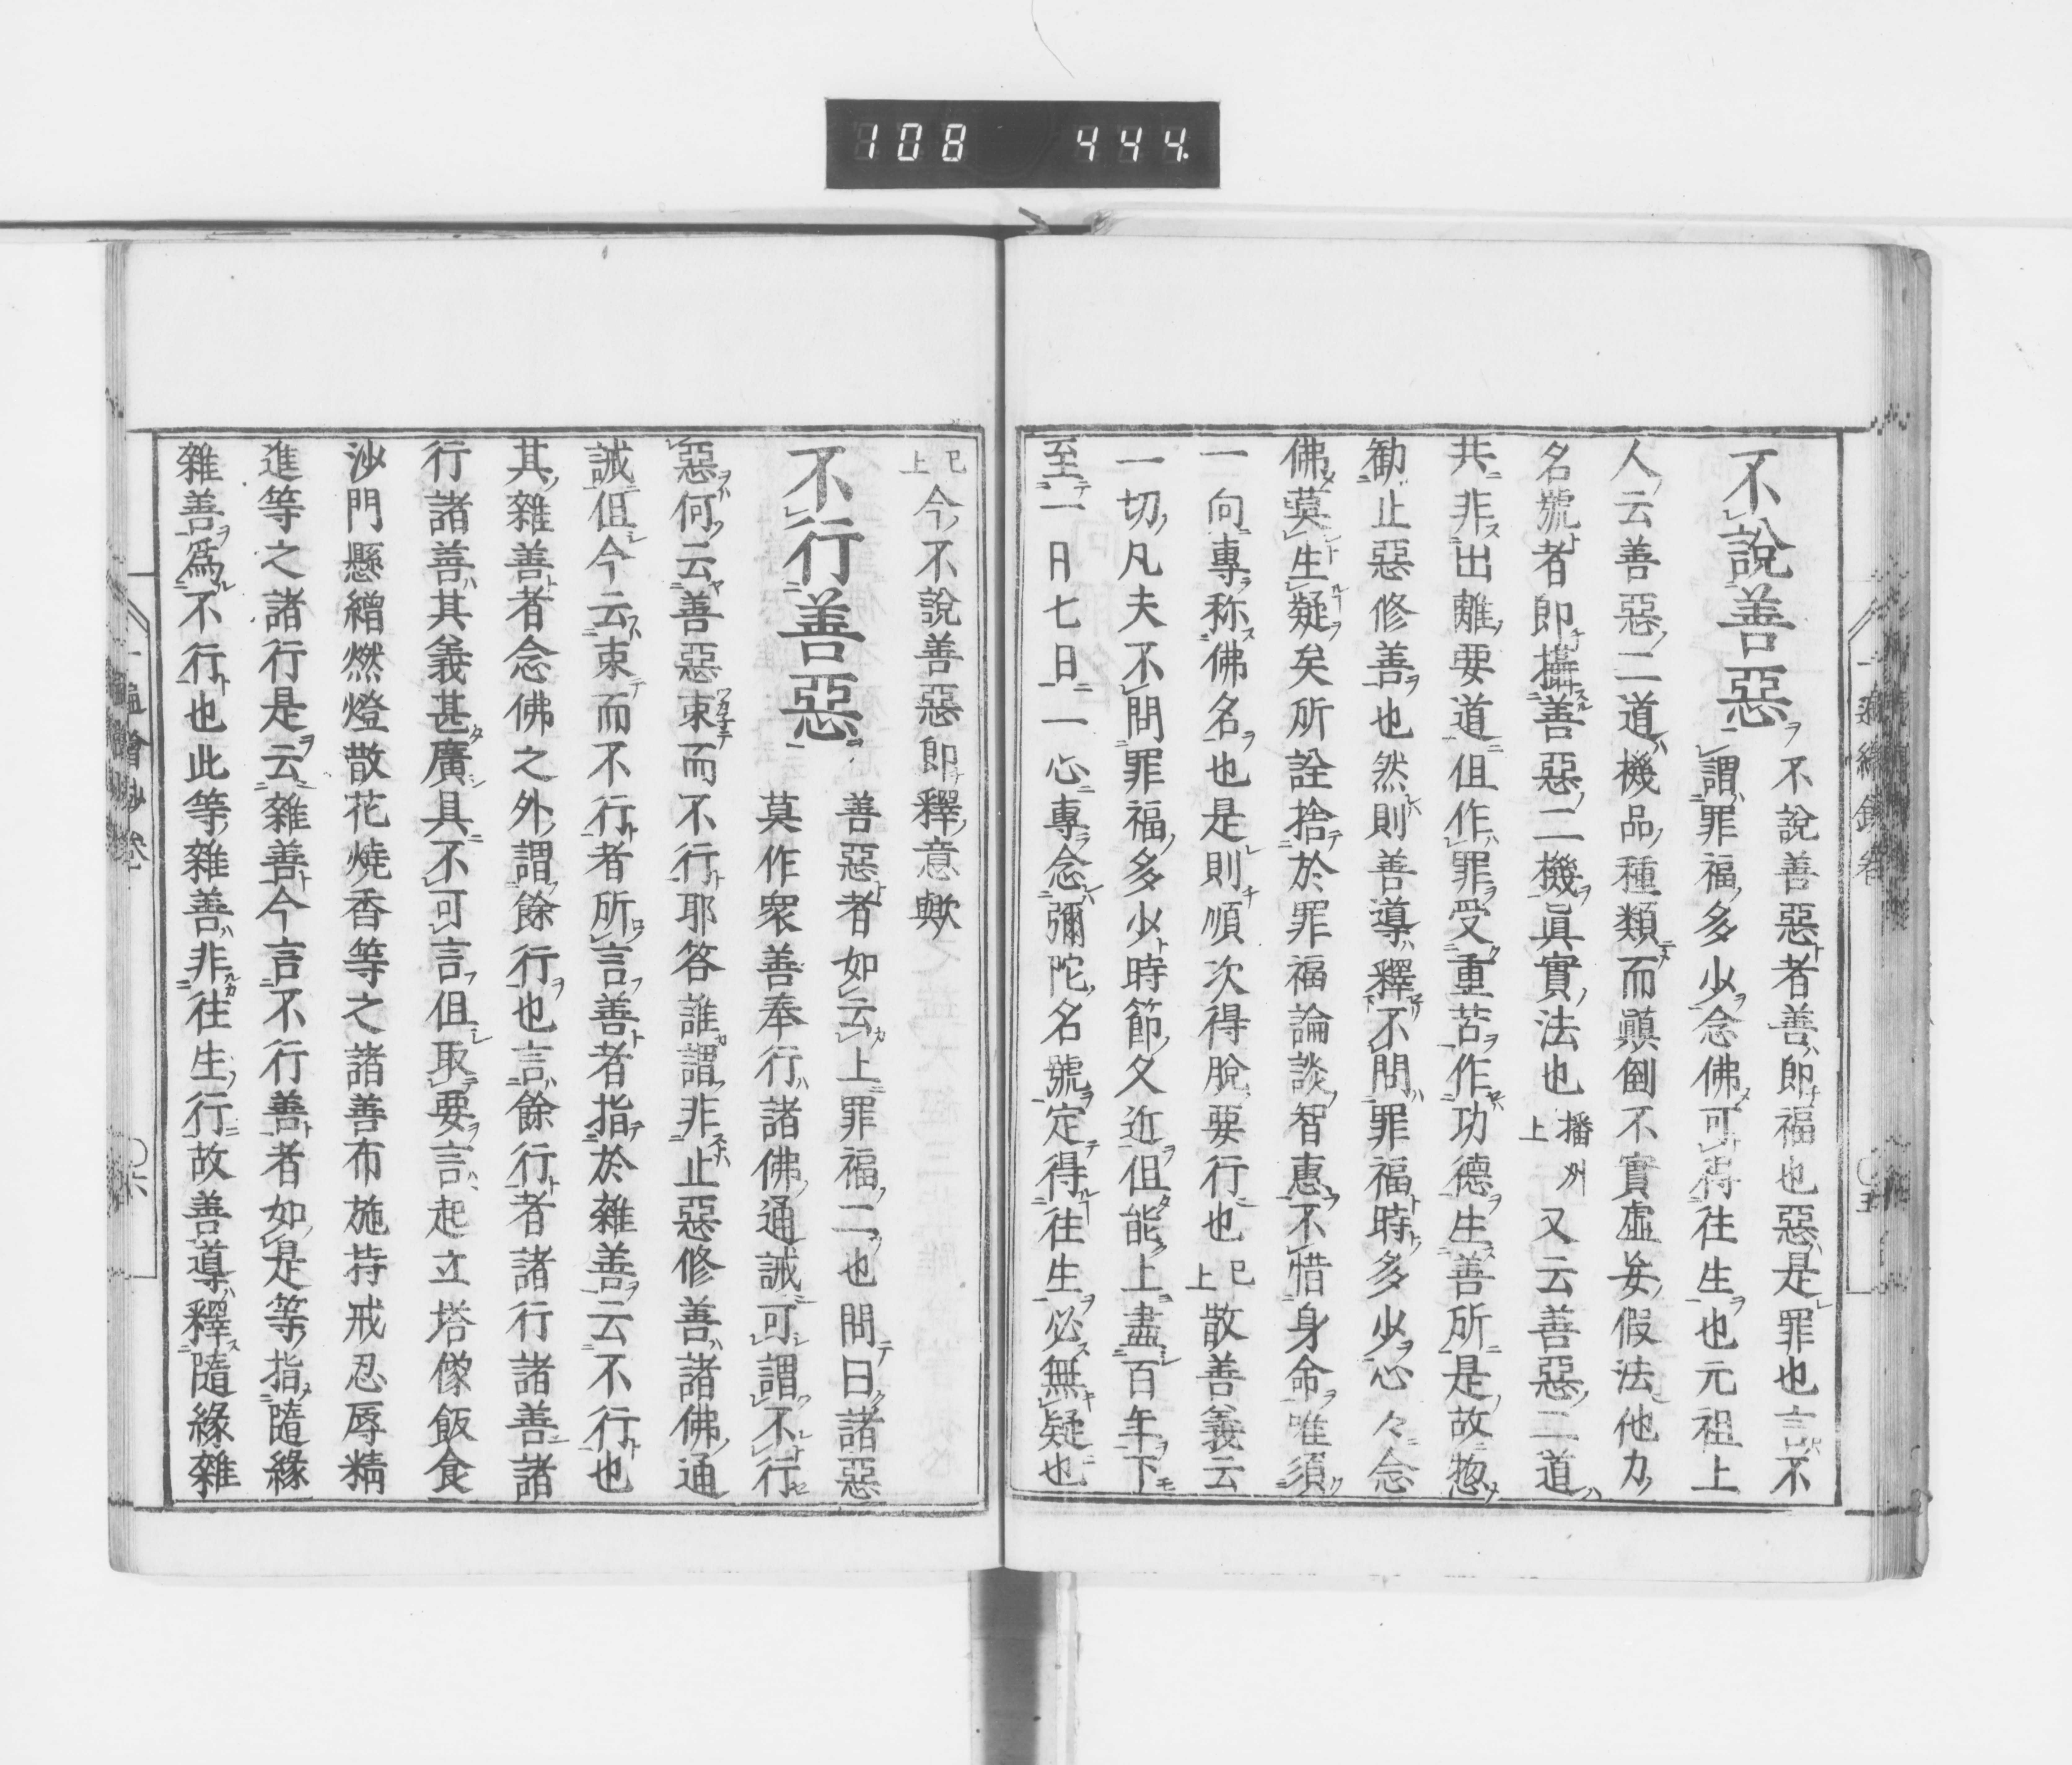 108 444
不說善惡
不說善惡者善即福也惡是罪也言不
謂罪福多少念佛可得往生也元祖上
人云善惡二道機品種類而顚倒不實虛妄假法他力
名號者即攝善惡二機眞實法也播州上又云善惡二道
共非出離要道但作罪受重苦作功德生善所是故惣
勸止惡修善也然則善導釋不問罪福時多少心々念
佛莫生疑矣所詮捨於罪福論談智惠不惜身命唯須
一向專称佛名也是則順次得脫要行也已上散善義云
一切凡夫不問罪福多少時節久近但能上盡百年下
至一日七日一心專念彌陀名號定得往生必無疑也
已上今不說善惡即釋意歟
不行善惡
善惡者如云上罪福二也問曰諸惡
莫作衆善奉行諸佛通誡可謂不行
惡何云善惡束而不行耶答誰謂非止惡修善諸佛通
誡但今云束而不行者所言善者指於雜善云不行也
其雜善者念佛之外謂餘行也言餘行者諸行諸善諸
行諸善其義甚廣具不可言但取要言起立塔像飯食
沙門懸繒燃燈散花燒香等之諸善布施持戒忍辱精
進等之諸行是云雜善今言不行善者如是等指隨緣
雜善爲不行也此等雜善非往生行故善導釋隨緣雜